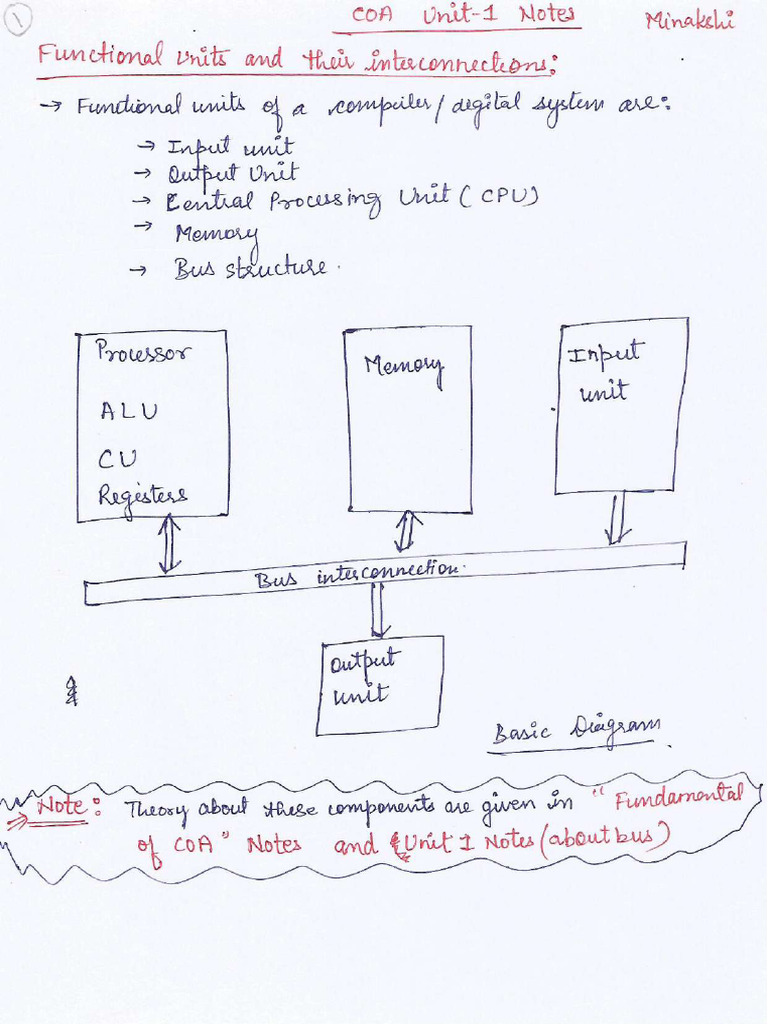 1
COA Unit-1 Notes
Minakshi
Functional Units and their interconnections:
→ Functional units of a computer/digital system are:
→ Input unit
→ Output Unit
→ Central Processing Unit (CPU)
→ Memory
→ Bus structure.
Processor
ALU
CU
Registers
Memory
Input
unit
Bus interconnection.
Output
unit
Basic Diagram.
Note: Theory about these components are given in "Fundamental
of COA" Notes and Unit 1 Notes (about bus)